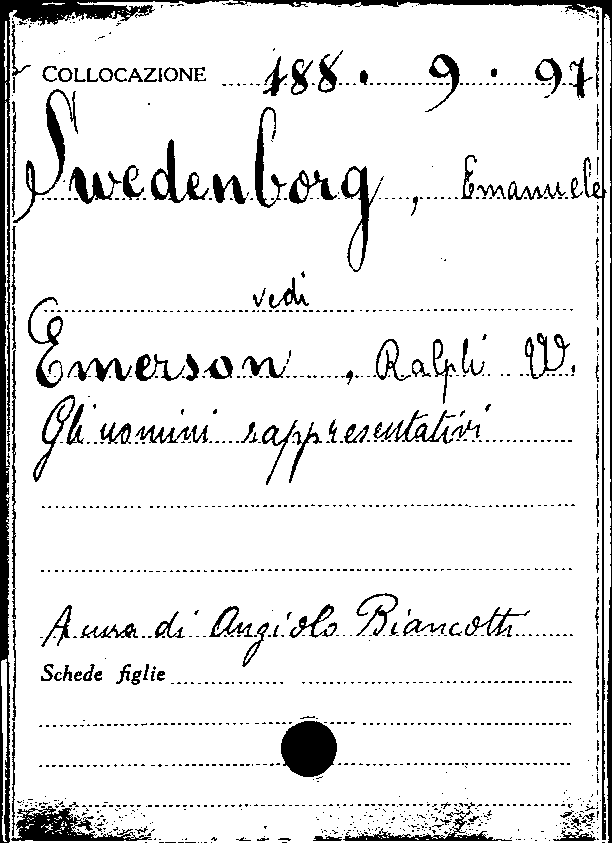 COLLOCAZIONE 188. 9. 97
Swedenborg, Emanuele
vedi
Emerson, Ralph W.
Gli uomini rappresentativi
A cura di Angiolo Biancotti
Schede figlie